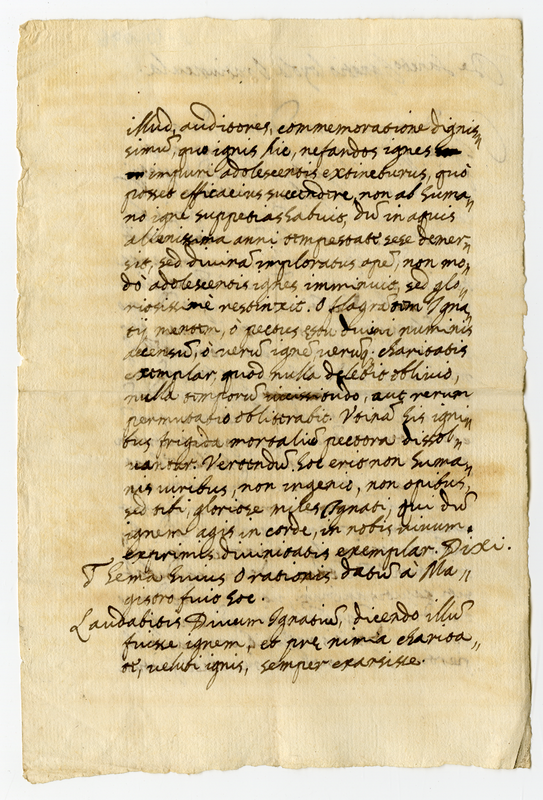 illud, auditores, commemoratione dignis„
simũ, quo ignis hic, nefandos ignes
impuri adolescentis extincturus, quò
posset efficacius succendere, non ab huma„
no igne suppetias habuit, dũ in aquis
alienissima anni tempestate sese demer„
sit, sed divinã imploratus opẽ, non mo„
dò adolescentis ignes imminuit, sed glo„
riosissimè restinxit. O flagratem Igna„
tij mentem, o pectus estu divini numinis
accensũ, ò verũ ignẽ, verũq. charitatis
exemplar, quod nulla delebit oblivio,
nulla temporũ vicissitudo, aut rerum
permutatio obliterabit. Utinã his igni„
bus frigida mortaliũ pectora dissol„
vantur. Verendũ hoc erit non huma„
nis viribus, non ingenio, non opibus,
sed tibi, gloriose miles Ignati, qui dũ
ignem agis in corde, in nobis divum
exprimis divinitatis exemplar. Dixi.
Thema huius Orationis datũ à Ma„
gistro fuit hoc.
Laudabitis Divum Ignatiũ, dicendo illũ
fuisse ignem, et prę nimia charita„
te, veluti ignis, semper exarsisse.